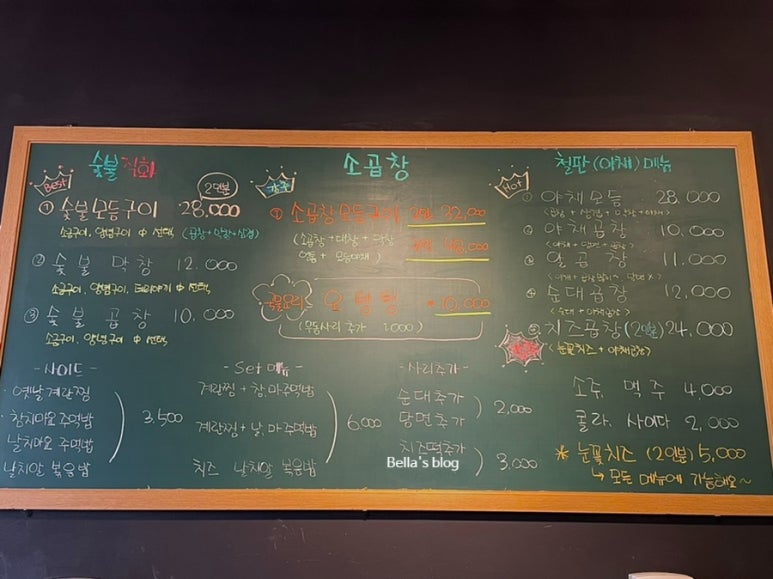 숯불 직화
Best
2인분
① 숯불모듬구이 28,000
소금구이, 양념구이 中 선택, (곱창+막창+삼겹)
② 숯불 막창 12,000
소금구이, 양념구이, 데리야끼 中 선택,
③ 숯불 곱창 10,000
소금구이, 양념구이 中 선택,
소곱창
① 소곱창모듬구이 32,000
(소곱창+대창+막창
염통 + 모듬야채)
국물요리 오뎅탕 6,000
(우동사리 추가 1,000)
철판 (야채) 메뉴
Hot
① 야채모듬 28,000
② 야채곱창 10,000
<야채+당면+곱창>
③ 알곱창 11,000
④ 순대곱창 12,000
<순대+야채곱창>
⑤ 치즈곱창(2인분) 24,000
<눈꽃치즈+야채곱창>
- 사이드 -
옛날계란찜
참치마요주먹밥
날치마요 주먹밥
날치알 볶음밥
3,500
- Set 메뉴 -
계란찜 + 참.마주먹밥
계란찜 + 날.마주먹밥
치즈 날치알 볶음밥
6,000
- 사리추가 -
순대추가
당면추가
2,000
치즈떡추가
3,000
소주, 맥주 4,000
콜라, 사이다 2,000
* 눈꽃치즈 (2인분) 5,000
↳ 모든 메뉴에 가능해요~
Bella's blog